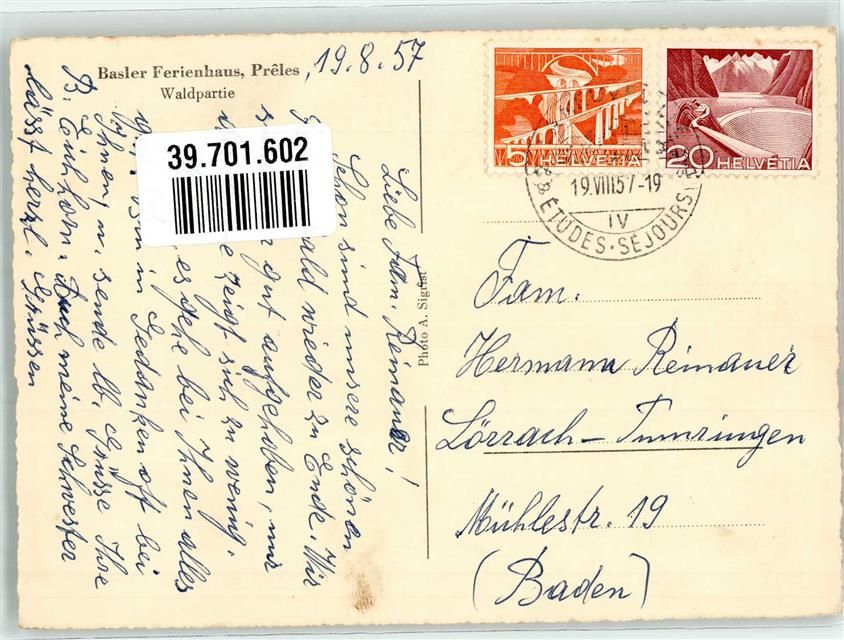 Basler Ferienhaus, Prêles, 19.8.57
Waldpartie
39.701.602
5 HELVETIA
20 HELVETIA
19.VIII57-19
IV
ÉTUDES-SÉJOURS
Photo A. Sigrist
Liebe Fam. Reinauer!
Schon sind unsere schönen
wald wieder zu Ende. Wir
gut aufgehoben, nur
zeigt sich zu wenig.
es gehe bei Ihnen alles
bin in Gedanken oft bei
Ihnen, u. sende lb. Grüsse Ihre
B. Einhorn. Auch meine Schwester
lässt herzl. Grüssen
Fam.
Hermann Reinauer
Lörrach-Tumringen
Mühlestr. 19
(Baden)